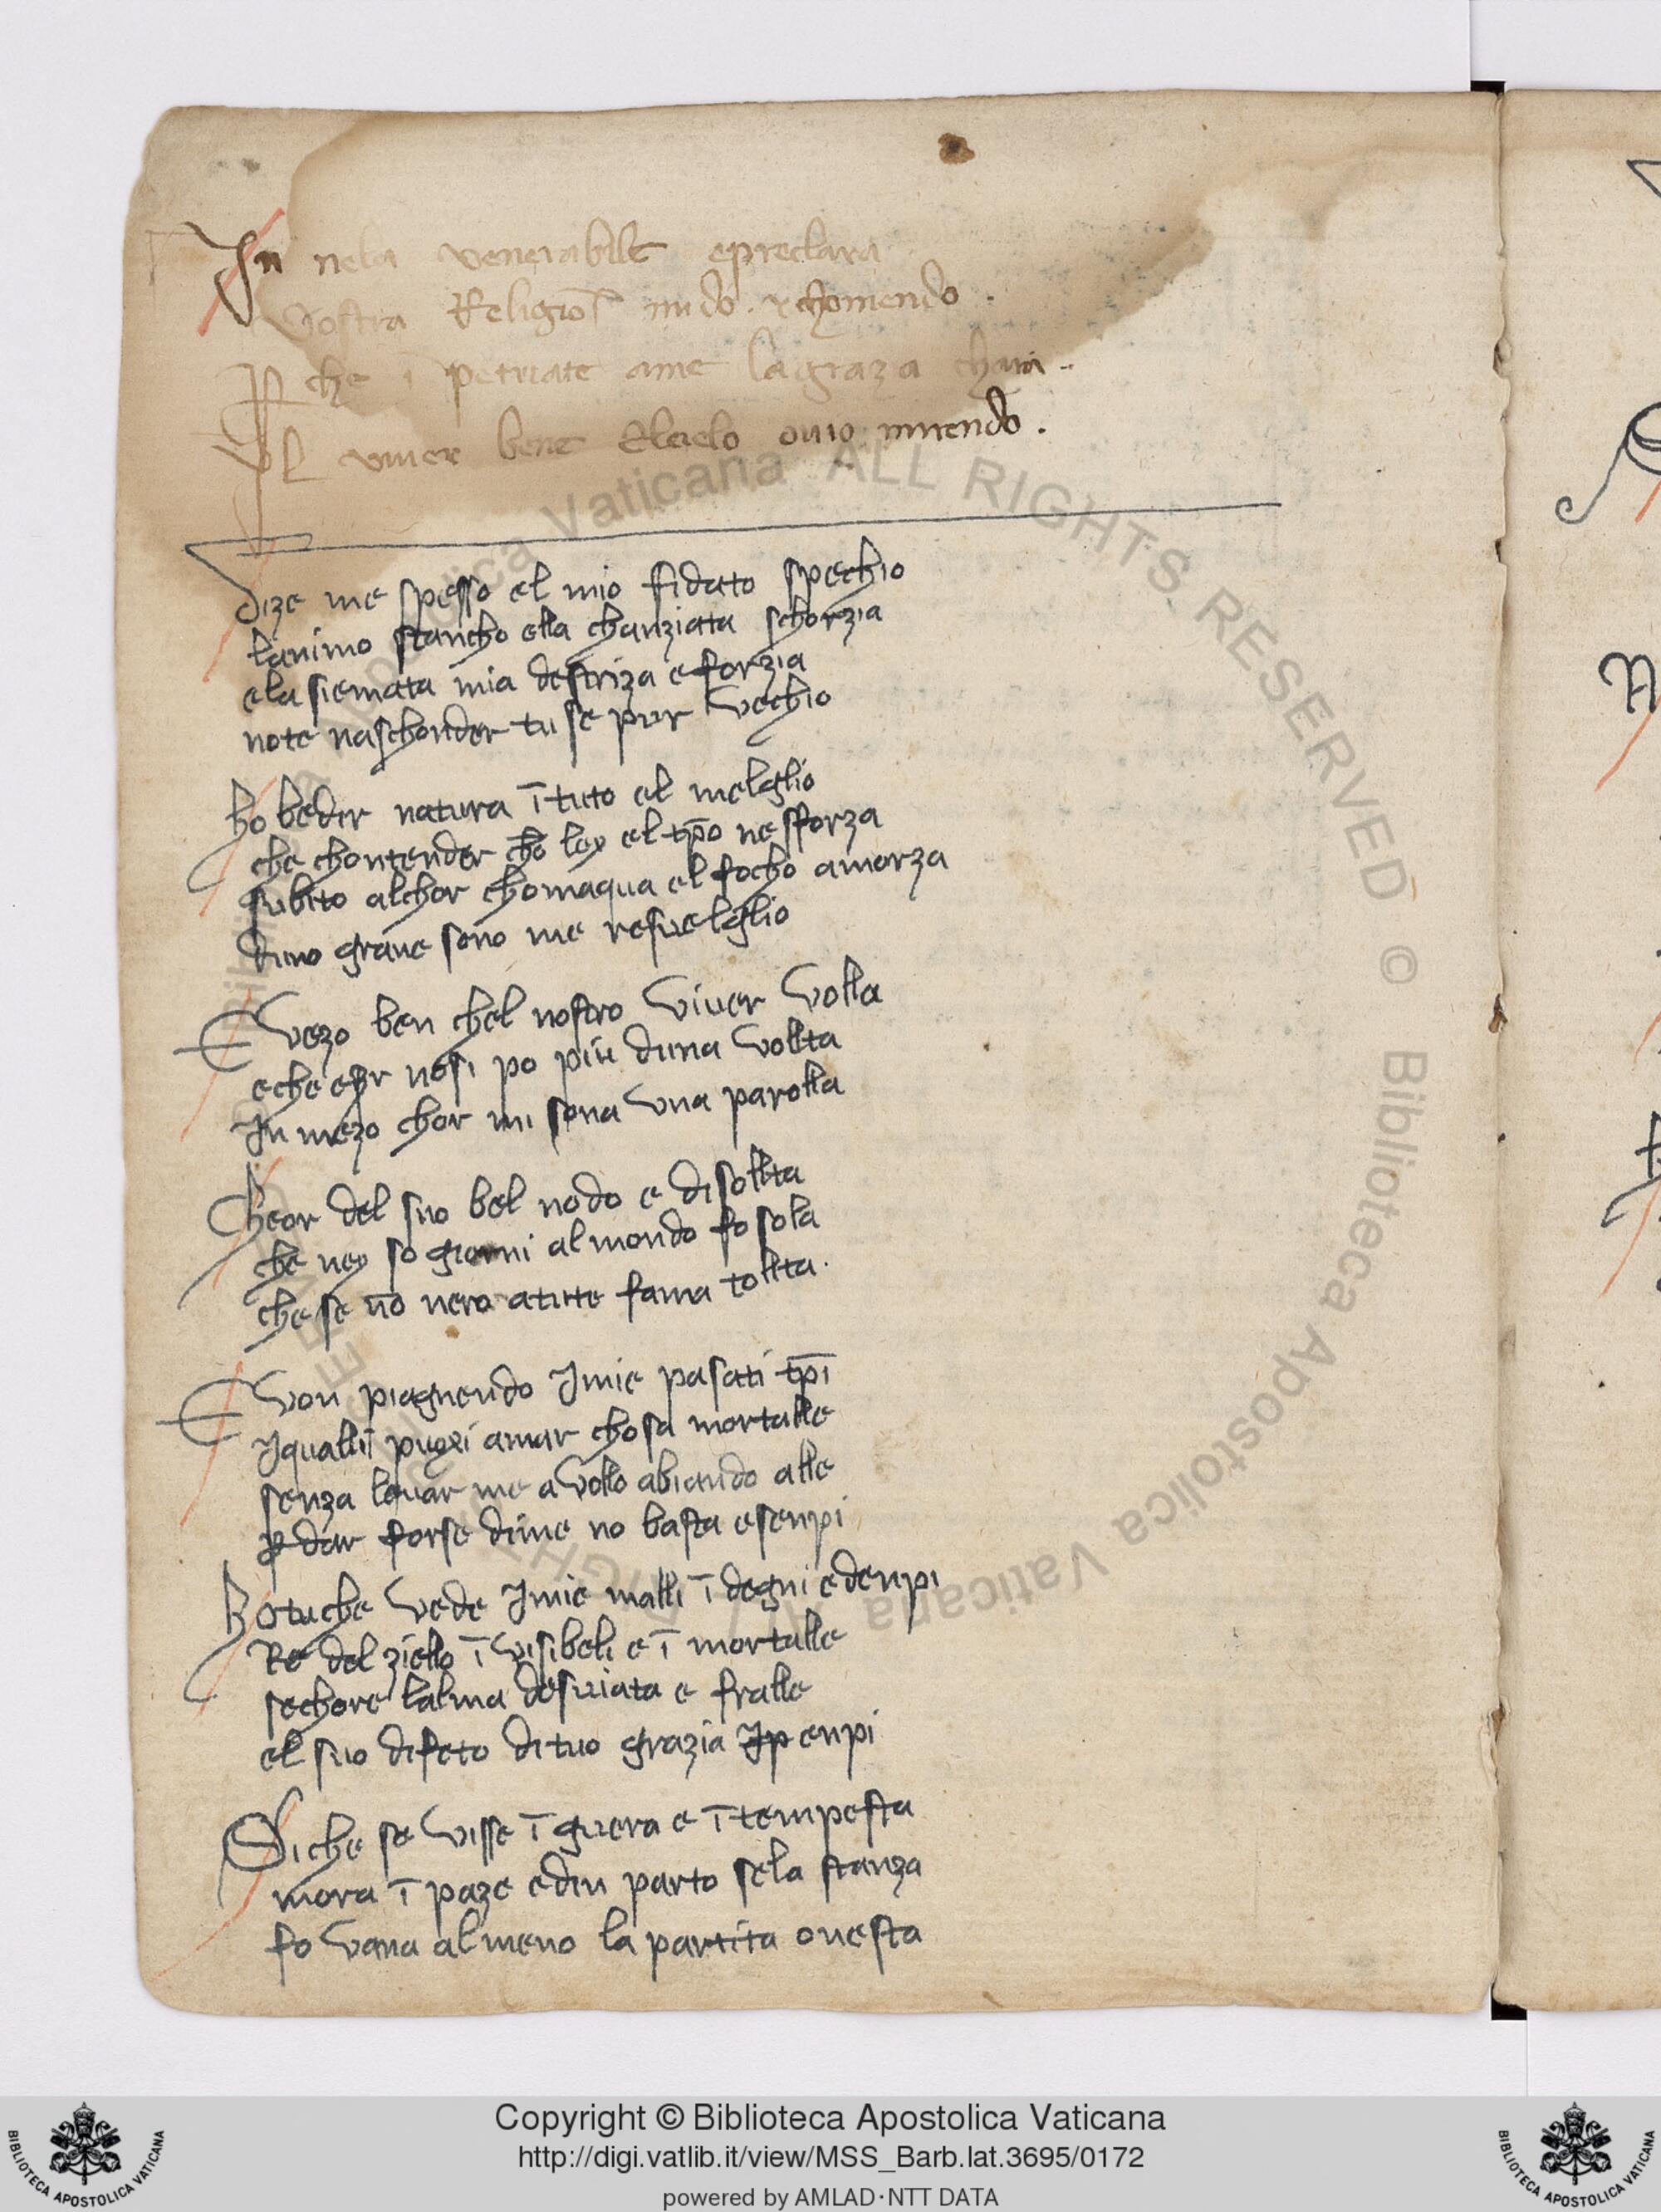 In nela venerabille epreclara
Vostra Religio͞ mi do. rechomendo.
P che ī petriate ame la graza chara.
Pl viver bene Elcielo ouio mirendo.
Dize me spesso el mio fidato spechio
lanimo stancho ella chanziata schorzia
ela siemata mia destriza e forzia
note naschonder tu se pur vechio
hobedir natura ī tuto el melglio
che chontender cho ley el tp̄o ne sforza
subito alchor chomaqua el focho amorza
duno grave sono me resvelglio
E vezo ben chel nostro viver volla
eche eser nosi po piu duna vollta
In mezo chor mi sona una parolla
Cheor del suo bel nodo e disollta
che ney so giorni al mondo fo sola
che se nō nero atute fama tollta.
E von piagnendo I mie pasati tp̄i
I quallī amar chosa mortalle
senza levar me a vollo abiando alle
p dar forse dime no basta esenpi
hotuche vede I mie malli ī degni edenpi
Re del ziello ī visibeli e ī mortalle
sechore lalma desviata e fralle
el suo difeto di tuo grazia enpi
Siche se visse ī guera e ī tempesta
mora ī paze edin porto se la stanza
fo vana almeno la partita onesta
Biblioteca Apostolica Vaticana ALL RIGHTS RESERVED ©
Copyright © Biblioteca Apostolica Vaticana
http://digi.vatlib.it/view/MSS_Barb.lat.3695/0172
powered by AMLAD·NTT DATA
BIBLIOTECA APOSTOLICA VATICANA
BIBLIOTECA APOSTOLICA VATICANA